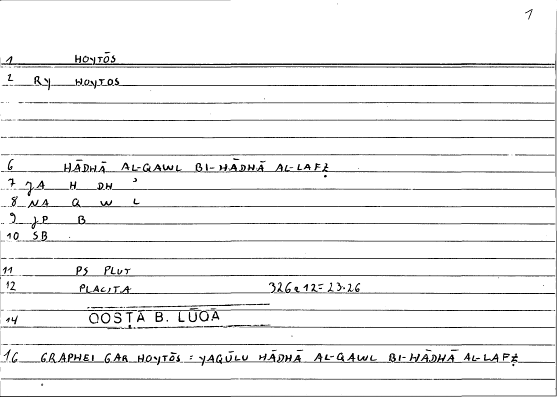 1
1 HOYTŌS
2 RY HOYTOS
6 HĀDHĀ AL-QAWL BI-HĀDHĀ AL-LAFẒ
7 JA H DH ʾ
8 NA Q W L
9 JP B
10 SB
11 PS PLUT
12 PLACITA 326a12=23.26
14 QOSṬĀ B. LŪQĀ
16 GRAPHEI GAR HOYTŌS : YAQŪLU HĀDHĀ AL-QAWL BI-HĀDHĀ AL-LAFẒ